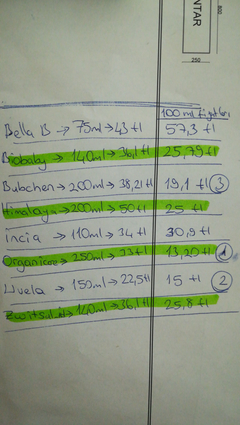 NTAR
250
100 ml fiyatları
Bella B → 75ml → 43 tl 57,3 tl
Biobaby → 140ml → 36,1 tl 25,79 tl
Bubchen → 200ml → 38,21 tl 19,1 tl 3
Himalaya → 200ml → 50 tl 25 tl
Incia → 110ml → 34 tl 30,9 tl
Organicore → 250ml → 33 tl 13,20 tl 1
Uvela → 150ml → 22,5 tl 15 tl 2
→ 140ml → 36,1 tl 25,8 tl